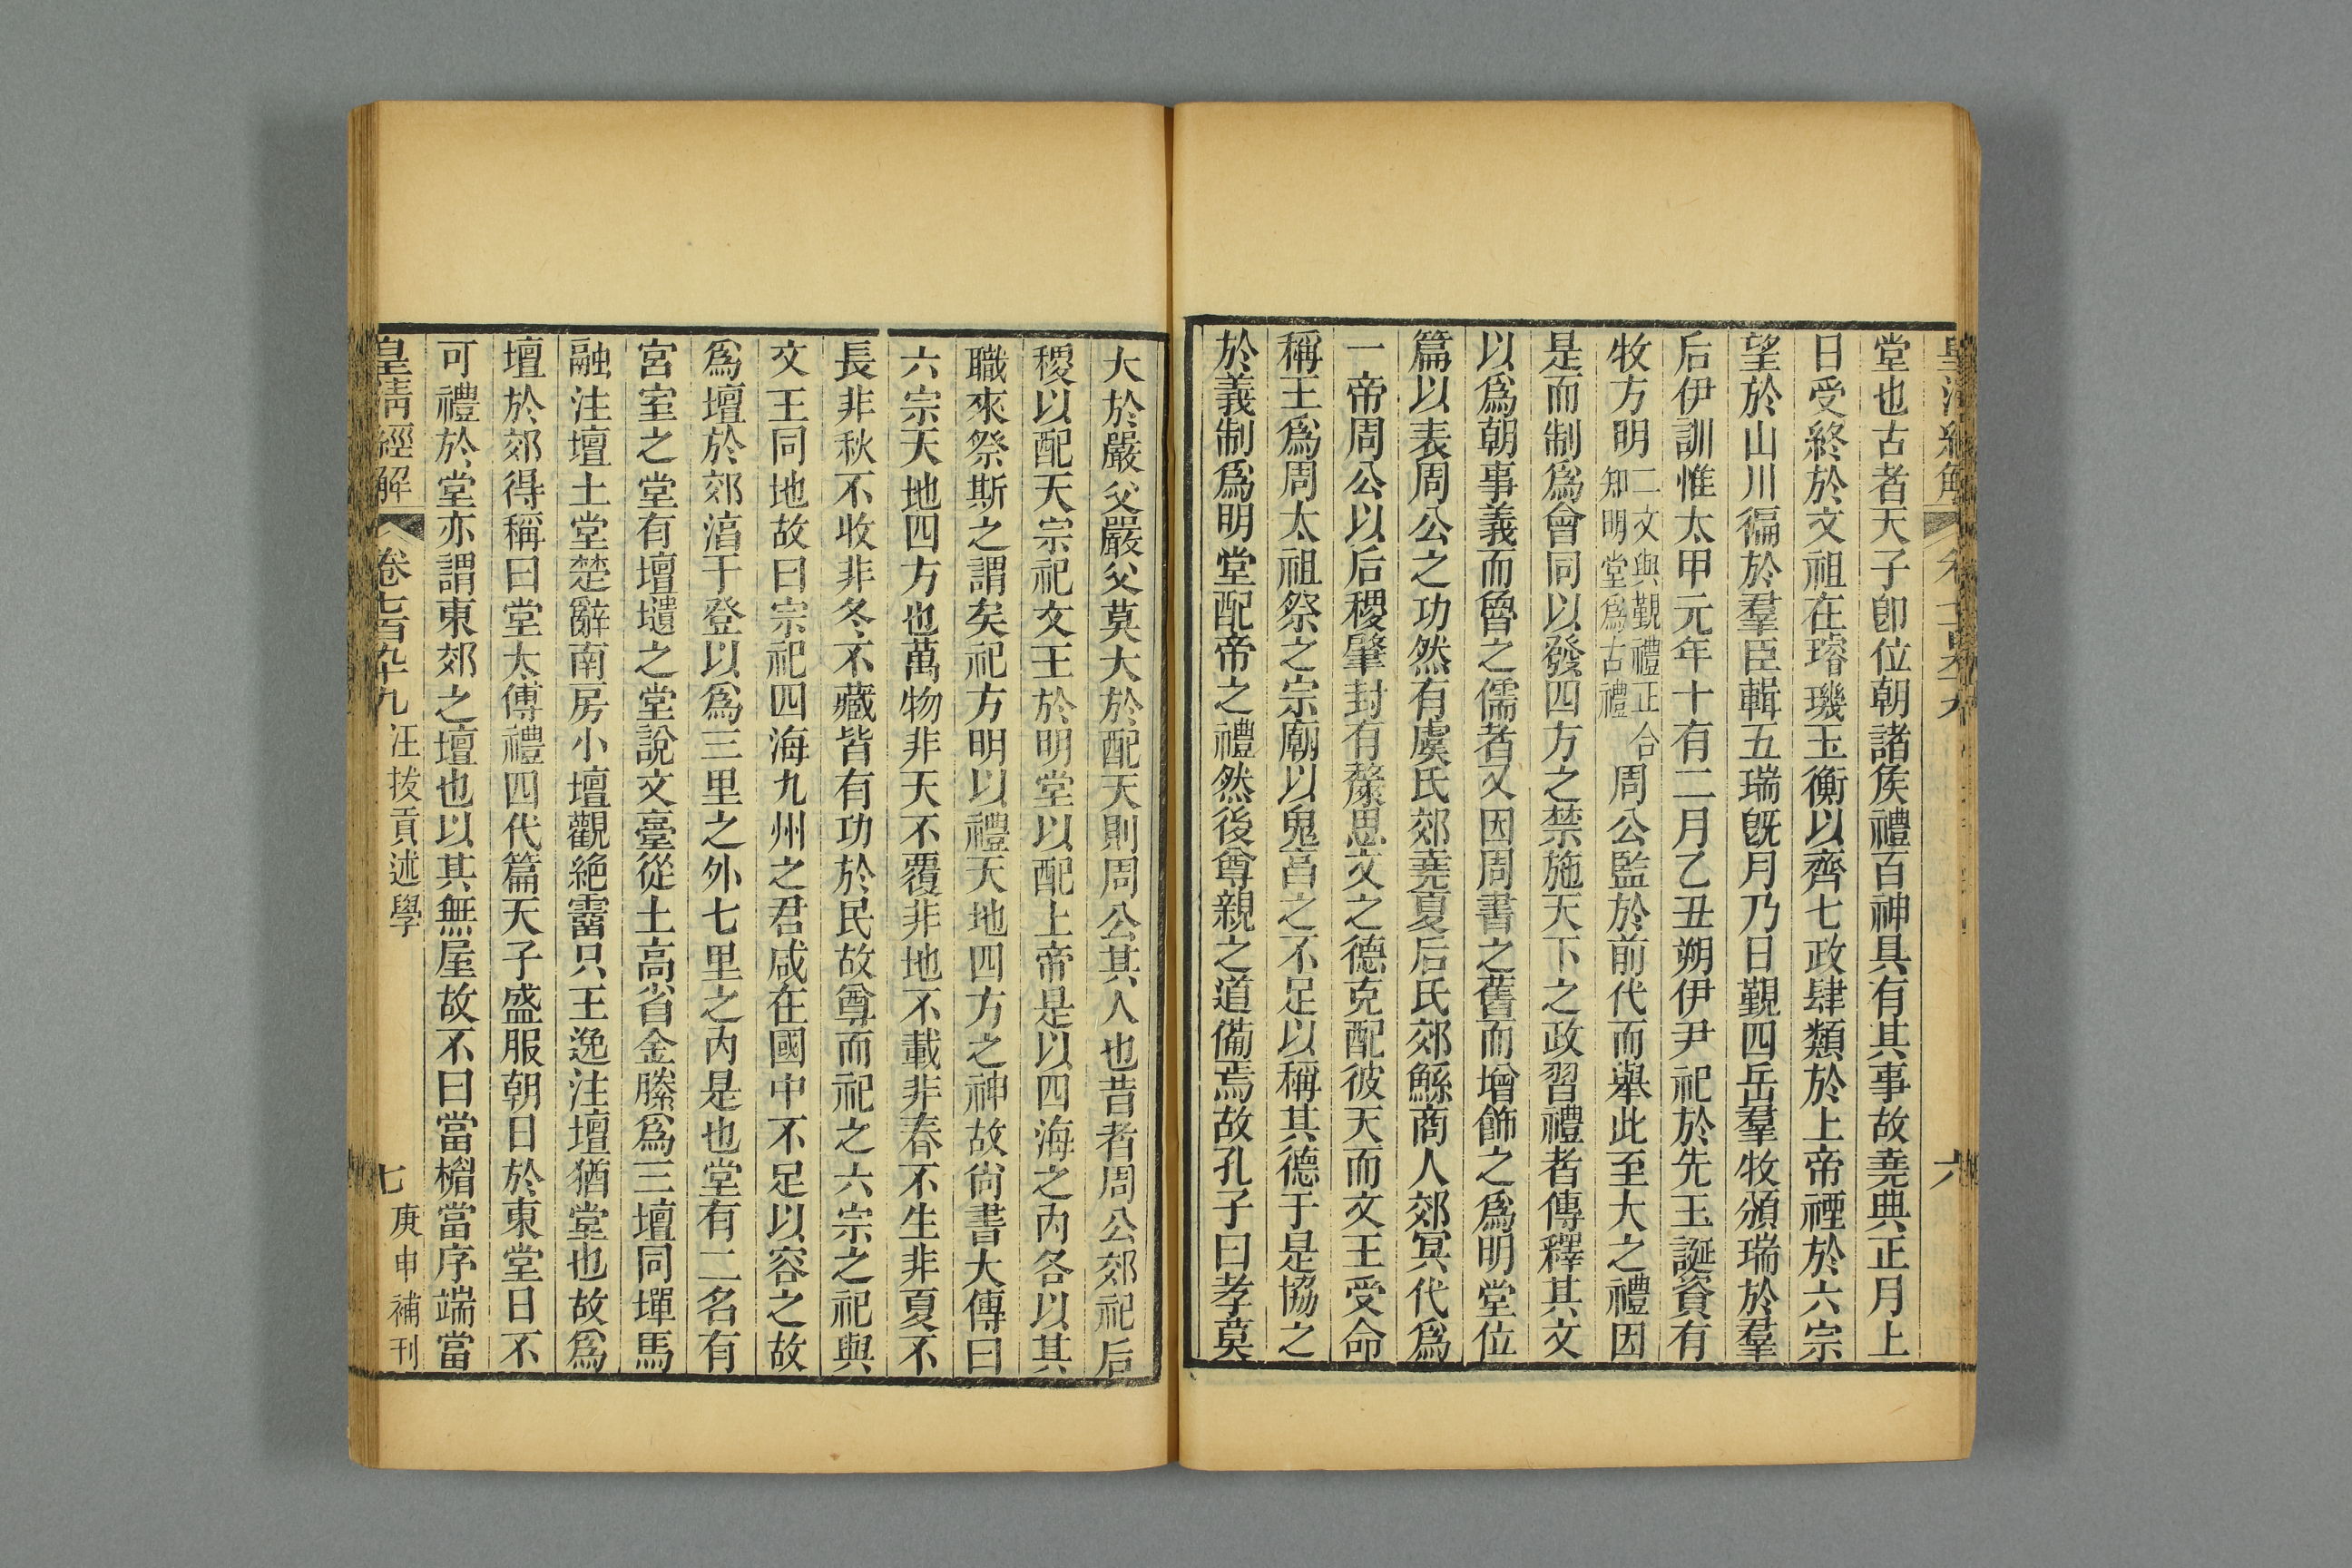 堂也古者天子卽位朝諸矦禮百神具有其事故堯典正月上
日受終於文祖在璿璣玉衡以齊七政肆類於上帝禋於六宗
望於山川徧於羣臣輯五瑞旣月乃日覲四岳羣牧頒瑞於羣
后伊訓惟太甲元年十有二月乙丑朔伊尹祀於先王誕資有
牧方明二文與覲禮正合知明堂爲古禮周公監於前代而舉此至大之禮因
是而制爲會同以發四方之禁施天下之政習禮者傳釋其文
以爲朝事義而魯之儒者又因周書之舊而增飾之爲明堂位
篇以表周公之功然有虞氏郊堯夏后氏郊鯀商人郊冥代爲
一帝周公以后稷肇封有斄思文之德克配彼天而文王受命
稱王爲周太祖祭之宗廟以鬼亯之不足以稱其德于是協之
於義制爲明堂配帝之禮然後尊親之道備焉故孔子曰孝莫
大於嚴父嚴父莫大於配天則周公其人也昔者周公郊祀后
稷以配天宗祀文王於明堂以配上帝是以四海之內各以其
職來祭斯之謂矣祀方明以禮天地四方之神故尙書大傳曰
六宗天地四方也萬物非天不覆非地不載非春不生非夏不
長非秋不收非冬不藏皆有功於民故尊而祀之六宗之祀與
文王同地故曰宗祀四海九州之君咸在國中不足以容之故
爲壇於郊淯于登以爲三里之外七里之內是也堂有二名有
宮室之堂有壇壝之堂說文臺從土高省金縢爲三壇同墠馬
融注壇土堂楚辭南房小壇觀絶霤只王逸注壇猶堂也故爲
壇於郊得稱曰堂太傅禮四代篇天子盛服朝日於東堂日不
可禮於堂亦謂東郊之壇也以其無屋故不曰當楣當序端當
皇淸經解 卷七百九十九 汪拔貢述學 七 庚申補刊